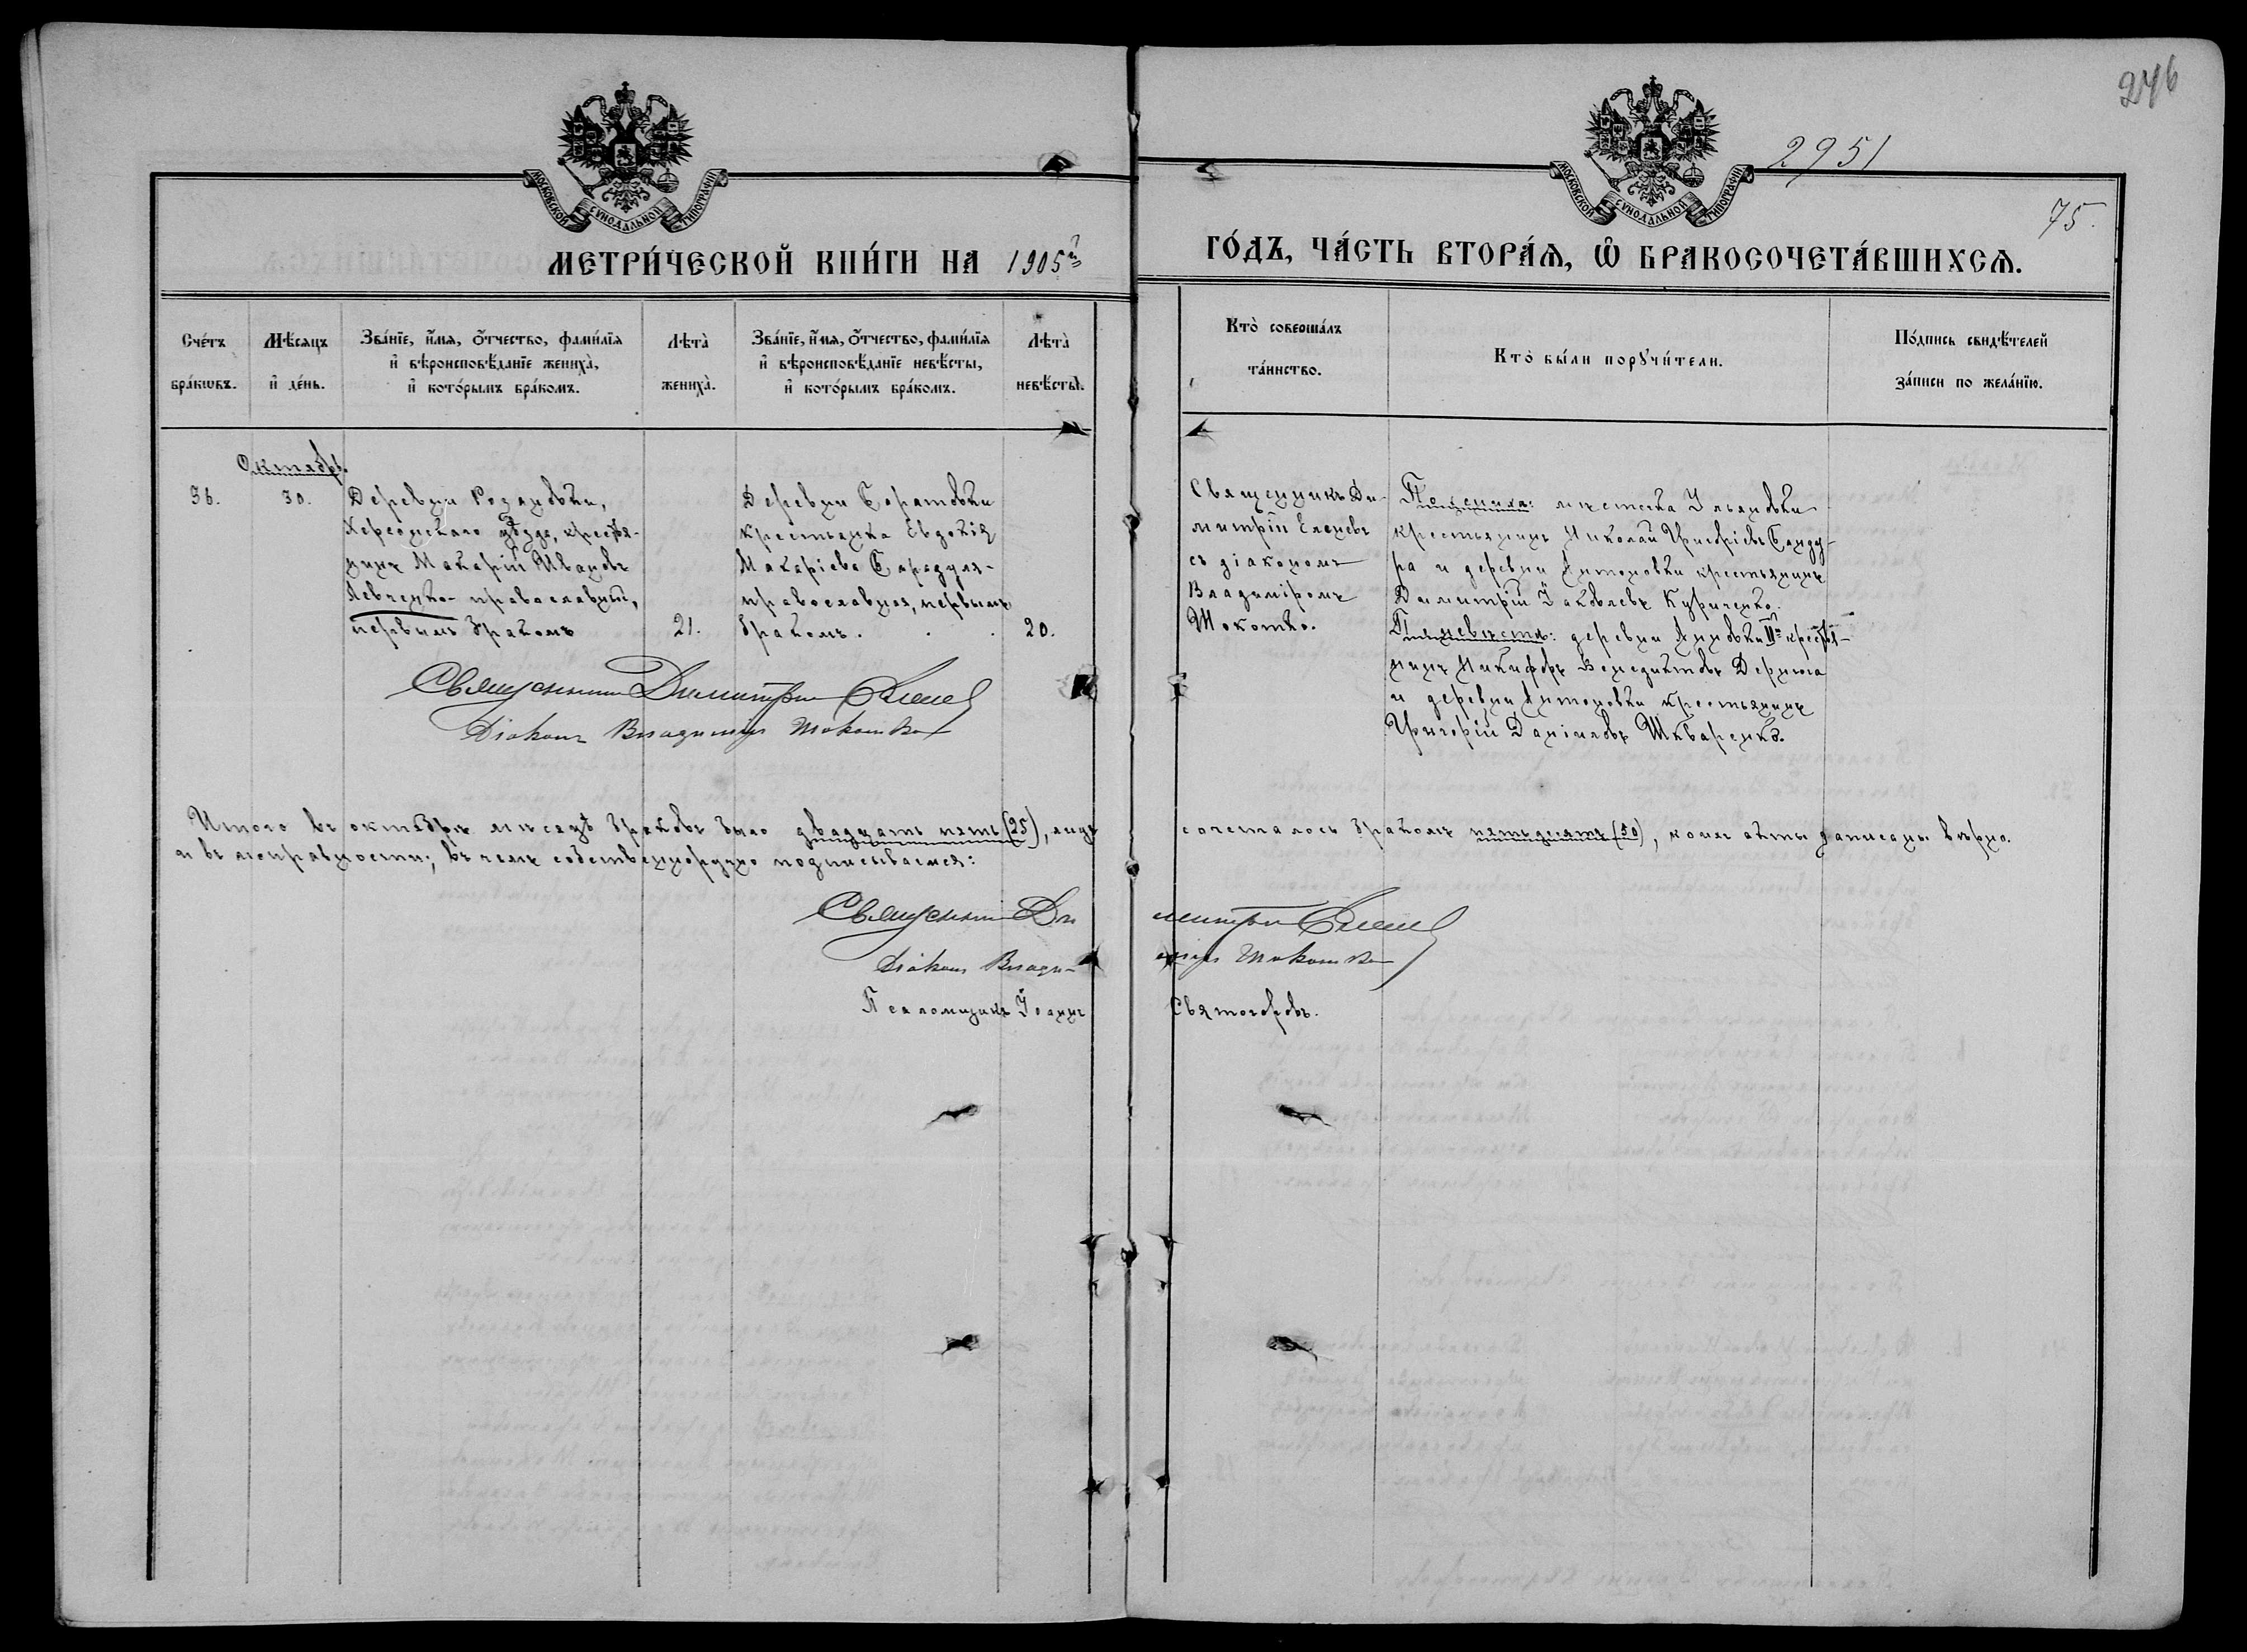 246
2951
75.
МОСКОВСКОЙ СѴНОДАЛЬНОЙ ТИПОГРАФІИ
МОСКОВСКОЙ СѴНОДАЛЬНОЙ ТИПОГРАФІИ
МЕТРИ́ЧЕСКОЙ КНИ́ГИ НА 1905й
ГО́ДЪ, ЧА́СТЬ ВТОРА́Ѧ, Ѽ БРАКОСОЧЕТА́ВШИХСѦ.
Сче́тъ
бра́кѡвъ.
Мѣ́сѧцъ
и҆ де́нь.
Зва́нїе, и҆́мѧ, ѻ҆́тчество, фами́лїѧ
и҆ вѣроисповѣ́данїе жениха̀,
и҆ кото́рымъ бра́комъ.
Лѣта̀
жениха̀.
Зва́нїе, и҆́мѧ, ѻ҆́тчество, фами́лїѧ
и҆ вѣроисповѣ́данїе невѣ́сты,
и҆ кото́рымъ бра́комъ.
Лѣта̀
невѣ́сты.
Кто̀ соверша́лъ
та́инство.
Кто̀ бы́ли порꙋчи́тели.
По́дпись свидѣ́телей
за́писи по жела́нїю.
Октябрь.
36.
30.
Деревни Розановки,
Херсонскаго уѣзда, крестья-
нинъ Макарій Ивановъ
Левченко православный,
первымъ бракомъ
21.
Деревни Баратовки
крестьянка Евдокія
Макаріева
православная, первымъ
бракомъ.
20.
Священникъ Ди-
митрій Еленевъ
съ діакономъ
Владиміромъ
Шокотко.
По женихѣ: мѣстечка Ульяновки
крестьянинъ Николай Григоріевъ Банду-
ра и деревни Антоновки крестьянинъ
Димитрій Іаковлевъ Куриченко.
По невѣстѣ: деревни Анновки IIй крестья-
нинъ Никифоръ Венедиктовъ Дернюга
и деревни Антоновки крестьянинъ
Григорій Даніиловъ Шкваренко.
Священникъ Димитрій Еленев
Діаконъ Владиміръ Шокотко
Итого въ октябрѣ мѣсяцѣ браковъ было двадцать пять (25), лицъ сочеталось бракомъ пятьдесятъ (50), коихъ акты записаны вѣрно
и въ исправности; въ чемъ собственноручно подписываемся:
Священникъ Димитрій Еленев
Діаконъ Владиміръ Шокотко
Псаломщикъ Іоаннъ Святогоровъ.